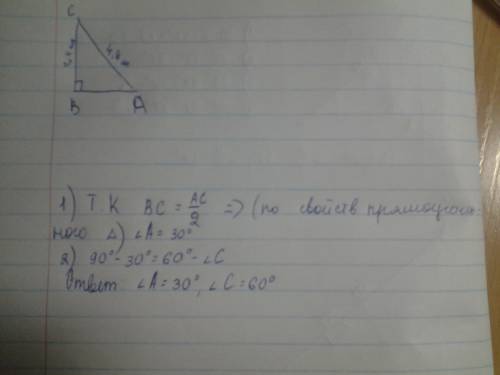 C
4,8 м
B
A
1) Т.К BC = AC/2 => (по свойств прямоуголь-
ного △) ∠A = 30°
2) 90° - 30° = 60° - ∠C
Ответ ∠A = 30°, ∠C = 60°